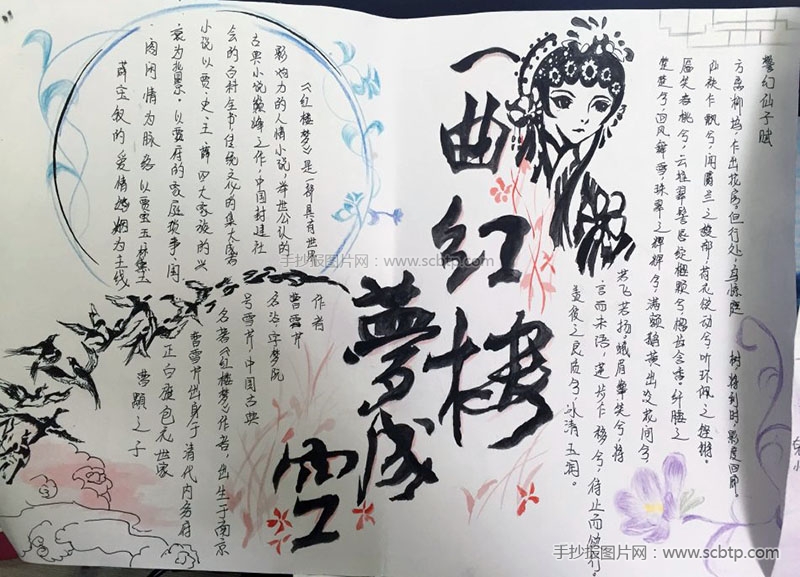 警幻仙子赋
方离柳坞，乍出花房，但行处，鸟惊庭 树将到时，影度回廊
仙袂乍飘兮，闻麝兰之馥郁，荷衣欲动兮，听环佩之铿锵。
靥笑春桃兮，云堆翠髻唇绽樱颗兮，榴齿含香，纤腰之
楚楚兮，回风舞雪，珠翠之辉辉兮，满额鹅黄出没花间兮
若飞若扬蛾眉颦笑兮，将
言而未语，莲步乍移兮，待止而欲行。
羡彼之良质兮，冰清玉润。
一曲红楼
夢成空
《红楼梦》是一部具有世界
影响力的人情小说，举世公认的
古典小说巅峰之作，中国封建社
会的百科全书，传统文化的集大成
小说以贾、史、王、薛四大家族的兴
衰为背景，以贾府的家庭琐事、闺
阁闲情为脉络，以贾宝玉、林黛玉
薛宝钗的爱情婚姻为主线
作者
曹雪芹
名沾，字梦阮
号雪芹，中国古典
名著《红楼梦》作者，出生于南京
曹雪芹出身于清代内务府
正白旗包衣世家
曹颙之子
手抄报图片网：www.scbtp.com
手抄报图片网：www.scbtp.com